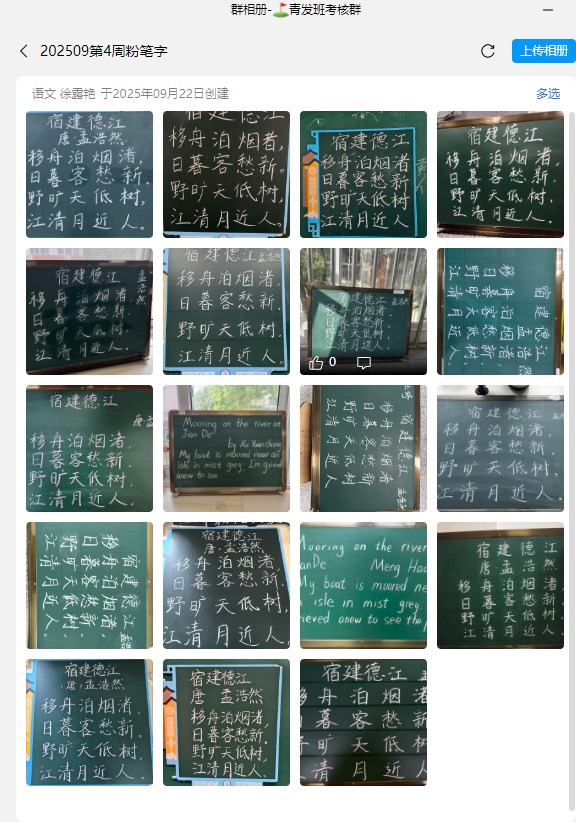 群相册-⛳青发班考核群
202509第4周粉笔字
上传相册
语文 徐露艳 于2025年09月22日创建
多选
宿建德江
唐·孟浩然
移舟泊烟渚,
日暮客愁新.
野旷天低树,
江清月近人.
宿建德江
移舟泊烟渚,
日暮客愁新.
野旷天低树,
江清月近人.
宿建德江
移舟泊烟渚
日暮客愁新
野旷天低树
江清月近人
宿建德江
移舟泊烟渚,
日暮客愁新.
野旷天低树,
江清月近人.
宿建德江
孟浩然
移舟泊烟渚
日暮客愁新.
野旷天低树
江清月近人.
宿建德江 孟浩然
移舟泊烟渚.
日暮客愁新.
野旷天低树.
江清月近人.
宿建德江
移舟泊烟渚
日暮客愁新
野旷天低树
江清月近人
0
宿建德江
移舟泊烟渚
日暮客愁新
野旷天低树
江清月近人
宿建德江
唐
移舟泊烟渚,
日暮客愁新.
野旷天低树,
江清月近人.
Mooring on the river at
Jian De
by Xu Yuanchong
My boat is moored near an
isle in mist grey. I'm grieved
anew to see
宿建德江
孟
移舟泊烟渚
日暮客愁新
野旷天低树
江清月近人
宿建德江
移舟泊烟渚,
日暮客愁新.
野旷天低树,
江清月近人.
宿建德江
孟
移舟泊烟渚,
日暮客愁新.
野旷天低树,
江清月近人.
宿建德江
唐·孟浩然
移舟泊烟渚,
日暮客愁新.
野旷天低树,
江清月近人.
Mooring on the river
anDe Meng Hao
My boat is moored ne
isle in mist grey.
ieved anew to see the
宿建德江
唐·孟浩然
移舟泊烟渚
日暮客愁新
野旷天低树
江清月近人
宿建德江
(唐)孟浩然
移舟泊烟渚,
日暮客愁新.
野旷天低树,
江清月近人.
宿建德江
唐 孟浩然
移舟泊烟渚,
日暮客愁新.
野旷天低树,
江清月近人.
宿建德江
舟泊烟渚
暮客愁新
旷天低树
清月近人